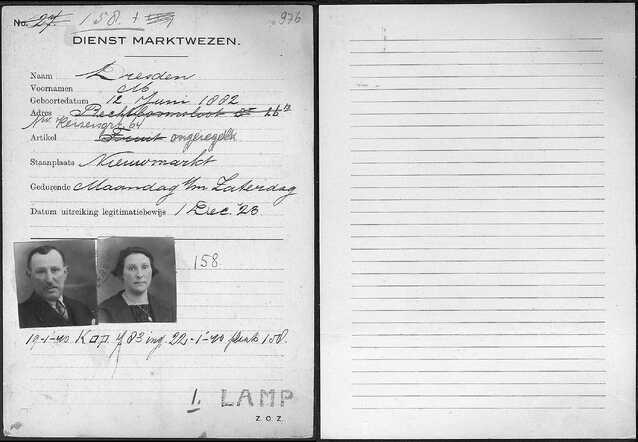 No. 27 158 976
DIENST MARKTWEZEN.
Naam Dresden
Voornamen M
Geboortedatum 12 Juni 1882
Adres Rechtboomsloot 26
Nw. Keizersgr. 64
Artikel Fruit ongeregeld
Staanplaats Nieuwmarkt
Gedurende Maandag t/m Zaterdag
Datum uitreiking legitimatiebewijs 1 Dec. '23
158
19-1-40 Kop. 83 ing. 22-1-40 plaats 158.
1. LAMP
Z.O.Z.